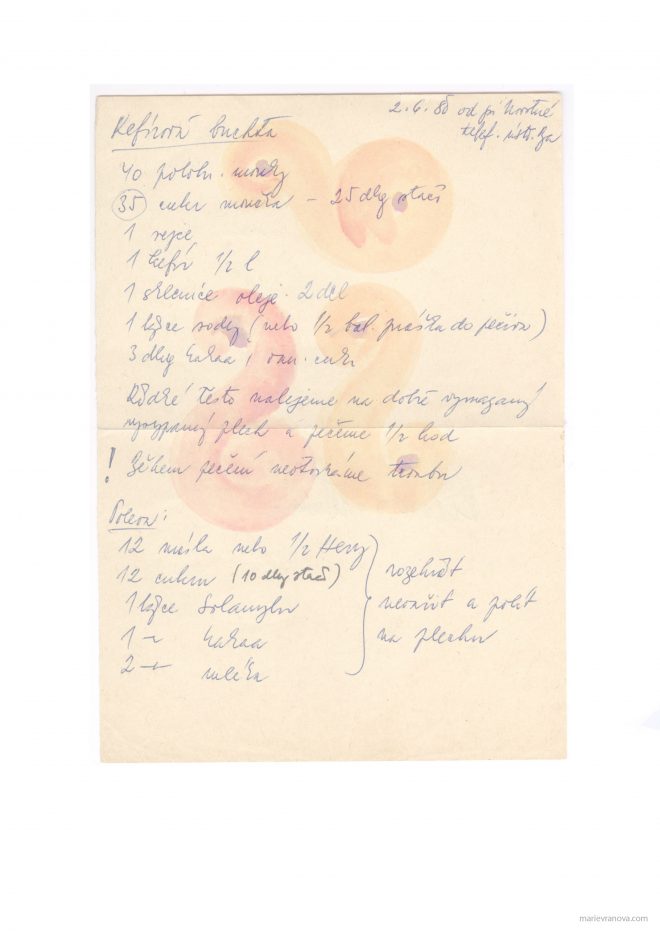 2. 6. 80 od pí Kovotné
telef. ústř.
Kefírová buchta
40 polohr. mouky
35 cukr moučka – 25 dkg stačí
1 vejce
1 kefír 1/2 l
1 sklenice oleje. 2 dcl
1 lžíce sody (nebo 1/2 bal. prášku do pečiva)
3 dkg kakaa, van. cukr
Řídké těsto nalijeme na dobře vymazaný
vysypaný plech a pečeme 1/2 hod
! Během pečení neotvíráme troubu
Poleva:
12 másla nebo 1/2 Hery
12 cukru (10 dkg stačí)
1 lžíce Solamylu
1 –"– kakaa
2 –"– mléka
rozehřát
nevařit a polít
na plechu
marievranova.com